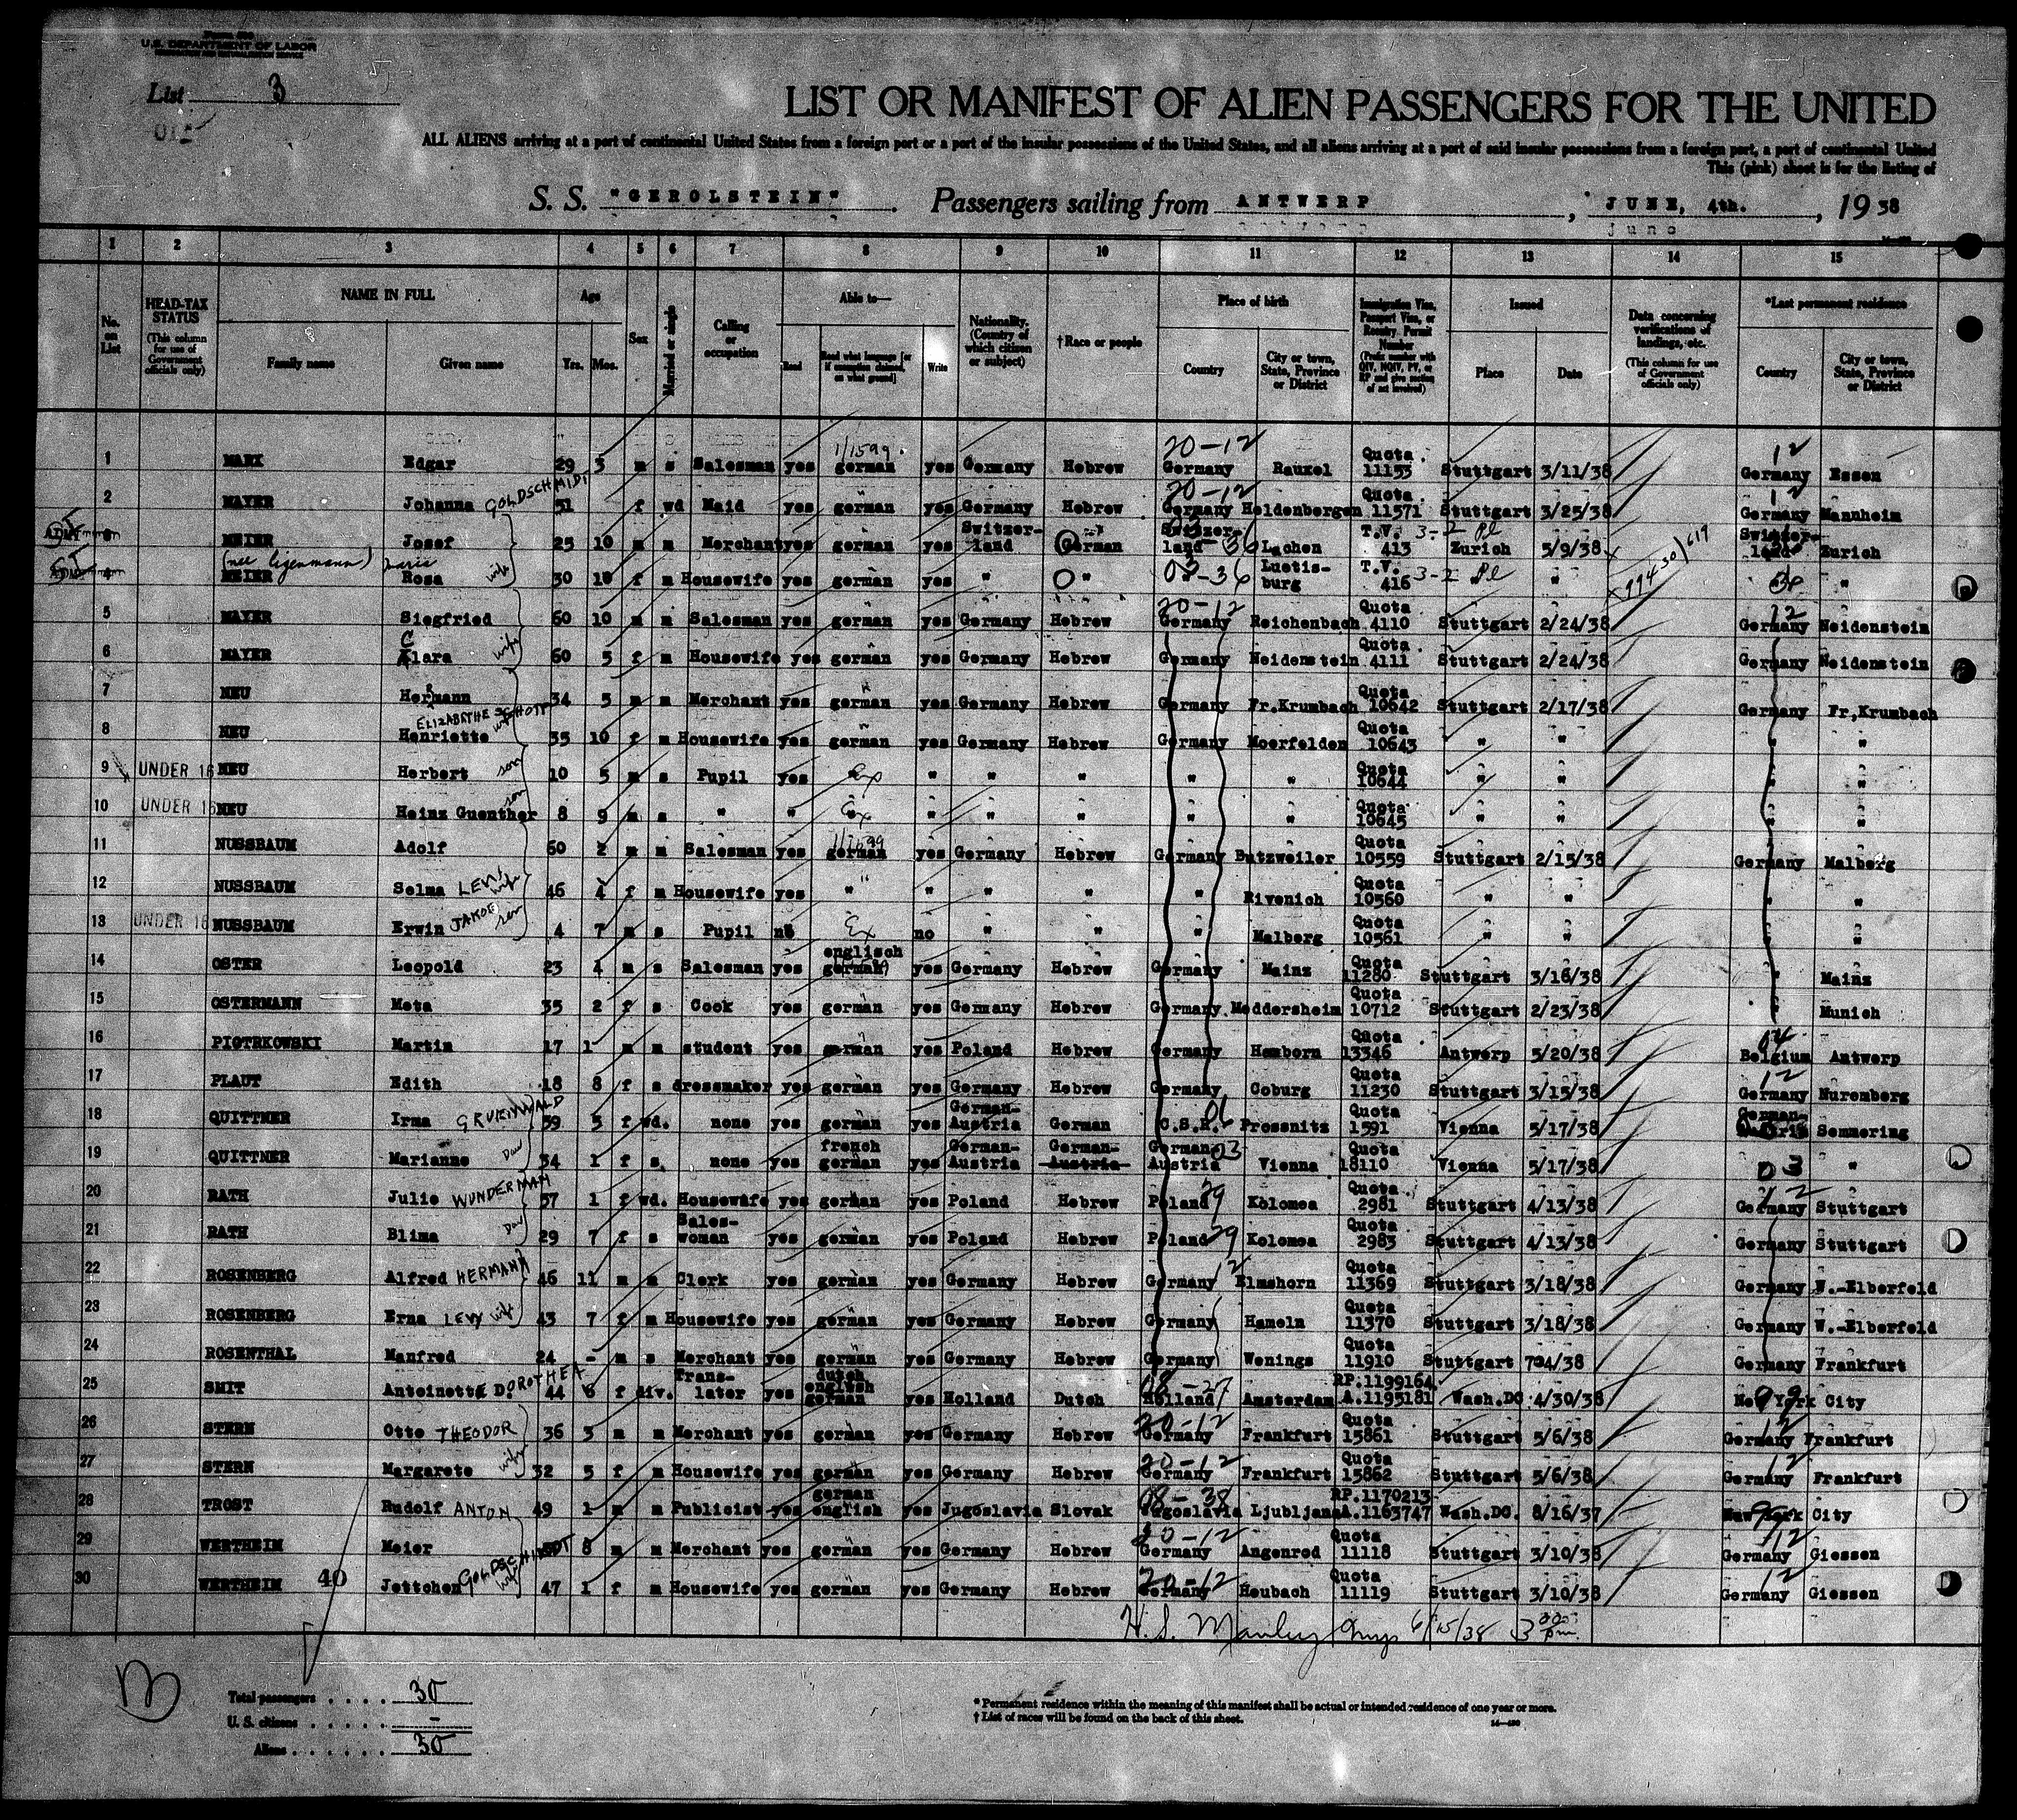 U.S. DEPARTMENT OF LABOR
List 3
LIST OR MANIFEST OF ALIEN PASSENGERS FOR THE UNITED
ALL ALIENS arriving at a port of continental United States from a foreign port or a port of the insular possessions of the United States, and all aliens arriving at a port of said insular possessions from a foreign port, a port of continental United
This (pink) sheet is for the listing of
S. S. "GEROLSTEIN". Passengers sailing from ANTWERP, JUNE, 4th., 19 38
1 2 3 4 5 6 7 8 9 10 11 12 13 14 15
No. on List
HEAD-TAX STATUS (This column for use of Government officials only)
NAME IN FULL Family name Given name
Age Yrs. Mos.
Sex
Married or single
Calling or occupation
Able to— Read Read what language [or if exemption claimed, on what ground] Write
Nationality. (Country of which citizen or subject)
†Race or people
Place of birth Country City or town, State, Province or District
Immigration Visa, Passport Visa, or Reentry Permit Number (Prefix number with QIV, NQIV, PV, or RP and give section of act involved)
Issued Place Date
Data concerning verifications of landings, etc. (This column for use of Government officials only)
*Last permanent residence Country City or town, State, Province or District
1 MARX Edgar 29 3 m s Salesman yes german yes Germany Hebrew 20-12 Germany Rauxel Quota 11153 Stuttgart 3/11/38 12 Germany Essen
2 MAYER Johanna GOLDSCHMIDT 51 f wd Maid yes german yes Germany Hebrew 20-12 Germany Heldenbergen Quota 11571 Stuttgart 3/25/38 12 Germany Mannheim
3 MEIER Josef 25 10 m m Merchant yes german yes Switzerland German Switzerland 36 Lachen T.V. 413 3-2 Zurich 5/9/38 Switzerland Zurich
4 MEIER (nee Eigenmann) Rosa Maria wife 30 10 f m Housewife yes german yes " " 36 Luetisburg T.V. 416 3-2 " " "
5 MAYER Siegfried 60 10 m m Salesman yes german yes Germany Hebrew 20-12 Germany Reichenbach Quota 4110 Stuttgart 2/24/38 12 Germany Neidenstein
6 MAYER Clara wife 60 5 f m Housewife yes german yes Germany Hebrew Germany Neidenstein Quota 4111 Stuttgart 2/24/38 Germany Neidenstein
7 NEU Hermann 34 5 m m Merchant yes german yes Germany Hebrew Germany Fr.Krumbach Quota 10642 Stuttgart 2/17/38 Germany Fr,Krumbach
8 NEU Henriette ELIZABETHE SCHOTT wife 35 10 f m Housewife yes german yes Germany Hebrew Germany Moerfelden Quota 10643 " " " "
9 UNDER 16 NEU Herbert son 10 5 m s Pupil yes Ex " " " " " Quota 10644 " " " "
10 UNDER 16 NEU Heinz Guenther son 8 9 m s " " Ex " " " " " Quota 10645 " " " "
11 NUSSBAUM Adolf 60 2 m m Salesman yes german yes Germany Hebrew Germany Butzweiler Quota 10559 Stuttgart 2/15/38 Germany Malberg
12 NUSSBAUM Selma LEVI wife 46 4 f m Housewife yes " " " " " Rivenich Quota 10560 " " " "
13 UNDER 16 NUSSBAUM Erwin JAKOB son 4 7 m s Pupil no Ex no " " " Malberg Quota 10561 " " " "
14 OSTER Leopold 23 4 m s Salesman yes englisch german yes Germany Hebrew Germany Mainz Quota 11280 Stuttgart 3/16/38 " Mainz
15 OSTERMANN Meta 35 2 f s Cook yes german yes Germany Hebrew Germany Meddersheim Quota 10712 Stuttgart 2/23/38 " Munich
16 PIOTRKOWSKI Martin 17 1 m m student yes german yes Poland Hebrew Germany Hamborn Quota 13346 Antwerp 5/20/38 04 Belgium Antwerp
17 PLAUT Edith 18 8 f s dressmaker yes german yes Germany Hebrew Germany Coburg Quota 11230 Stuttgart 3/15/38 12 Germany Nuremberg
18 QUITTNER Irma GRUENWALD 59 5 f wd. none yes german yes German-Austria German C.S.R. 06 Prossnitz Quota 1591 Vienna 5/17/38 German-Austria Semmering
19 QUITTNER Marianne Dau 34 1 f s. none yes french german yes German-Austria German-Austria German Austria 03 Vienna Quota 18110 Vienna 5/17/38 03 "
20 RATH Julie WUNDERMAN 57 1 f wd. Housewife yes german yes Poland Hebrew Poland 29 Kolomea Quota 2981 Stuttgart 4/13/38 12 Germany Stuttgart
21 RATH Blima Dau 29 7 f s Saleswoman yes german yes Poland Hebrew Poland 29 Kolomea Quota 2983 Stuttgart 4/13/38 Germany Stuttgart
22 ROSENBERG Alfred HERMANN 46 11 m m Clerk yes german yes Germany Hebrew Germany 12 Elmshorn Quota 11369 Stuttgart 3/18/38 Germany W.-Elberfeld
23 ROSENBERG Erna LEVY wife 43 7 f m Housewife yes german yes Germany Hebrew Germany Hameln Quota 11370 Stuttgart 3/18/38 Germany W.-Elberfeld
24 ROSENTHAL Manfred 24 - m s Merchant yes german yes Germany Hebrew Germany Wenings Quota 11910 Stuttgart 704/38 Germany Frankfurt
25 SMIT Antoinette DOROTHEA 44 6 f div. Translater yes dutch english german yes Holland Dutch Holland Amsterdam RP.1199164 A.1195181 Wash.DC 4/30/38 99 New York City
26 STERN Otto THEODOR 36 3 m m Merchant yes german yes Germany Hebrew 20-12 Germany Frankfurt Quota 15861 Stuttgart 5/6/38 12 Germany Frankfurt
27 STERN Margarete wife 32 5 f m Housewife yes german yes Germany Hebrew 20-12 Germany Frankfurt Quota 15862 Stuttgart 5/6/38 12 Germany Frankfurt
28 TROST Rudolf ANTON 49 1 m m Publicist yes german english yes Jugoslavia Slovak 08-38 Jugoslavia Ljubljana RP.1170213 A.1163747 Wash.DC. 8/16/37 New York City
29 WERTHEIM Meier 8 m m Merchant yes german yes Germany Hebrew 20-12 Germany Angenrod Quota 11118 Stuttgart 3/10/38 12 Germany Giessen
30 WERTHEIM 40 Jettchen GOLDSCHMIDT wife 47 1 f m Housewife yes german yes Germany Hebrew 20-12 Germany Heubach Quota 11119 Stuttgart 3/10/38 12 Germany Giessen
H. S. Manley 6/15/38 3 00 pm.
Total passengers . . . . 30
U. S. citizens . . . . . -
Aliens . . . . . . 30
* Permanent residence within the meaning of this manifest shall be actual or intended residence of one year or more.
† List of races will be found on the back of this sheet.